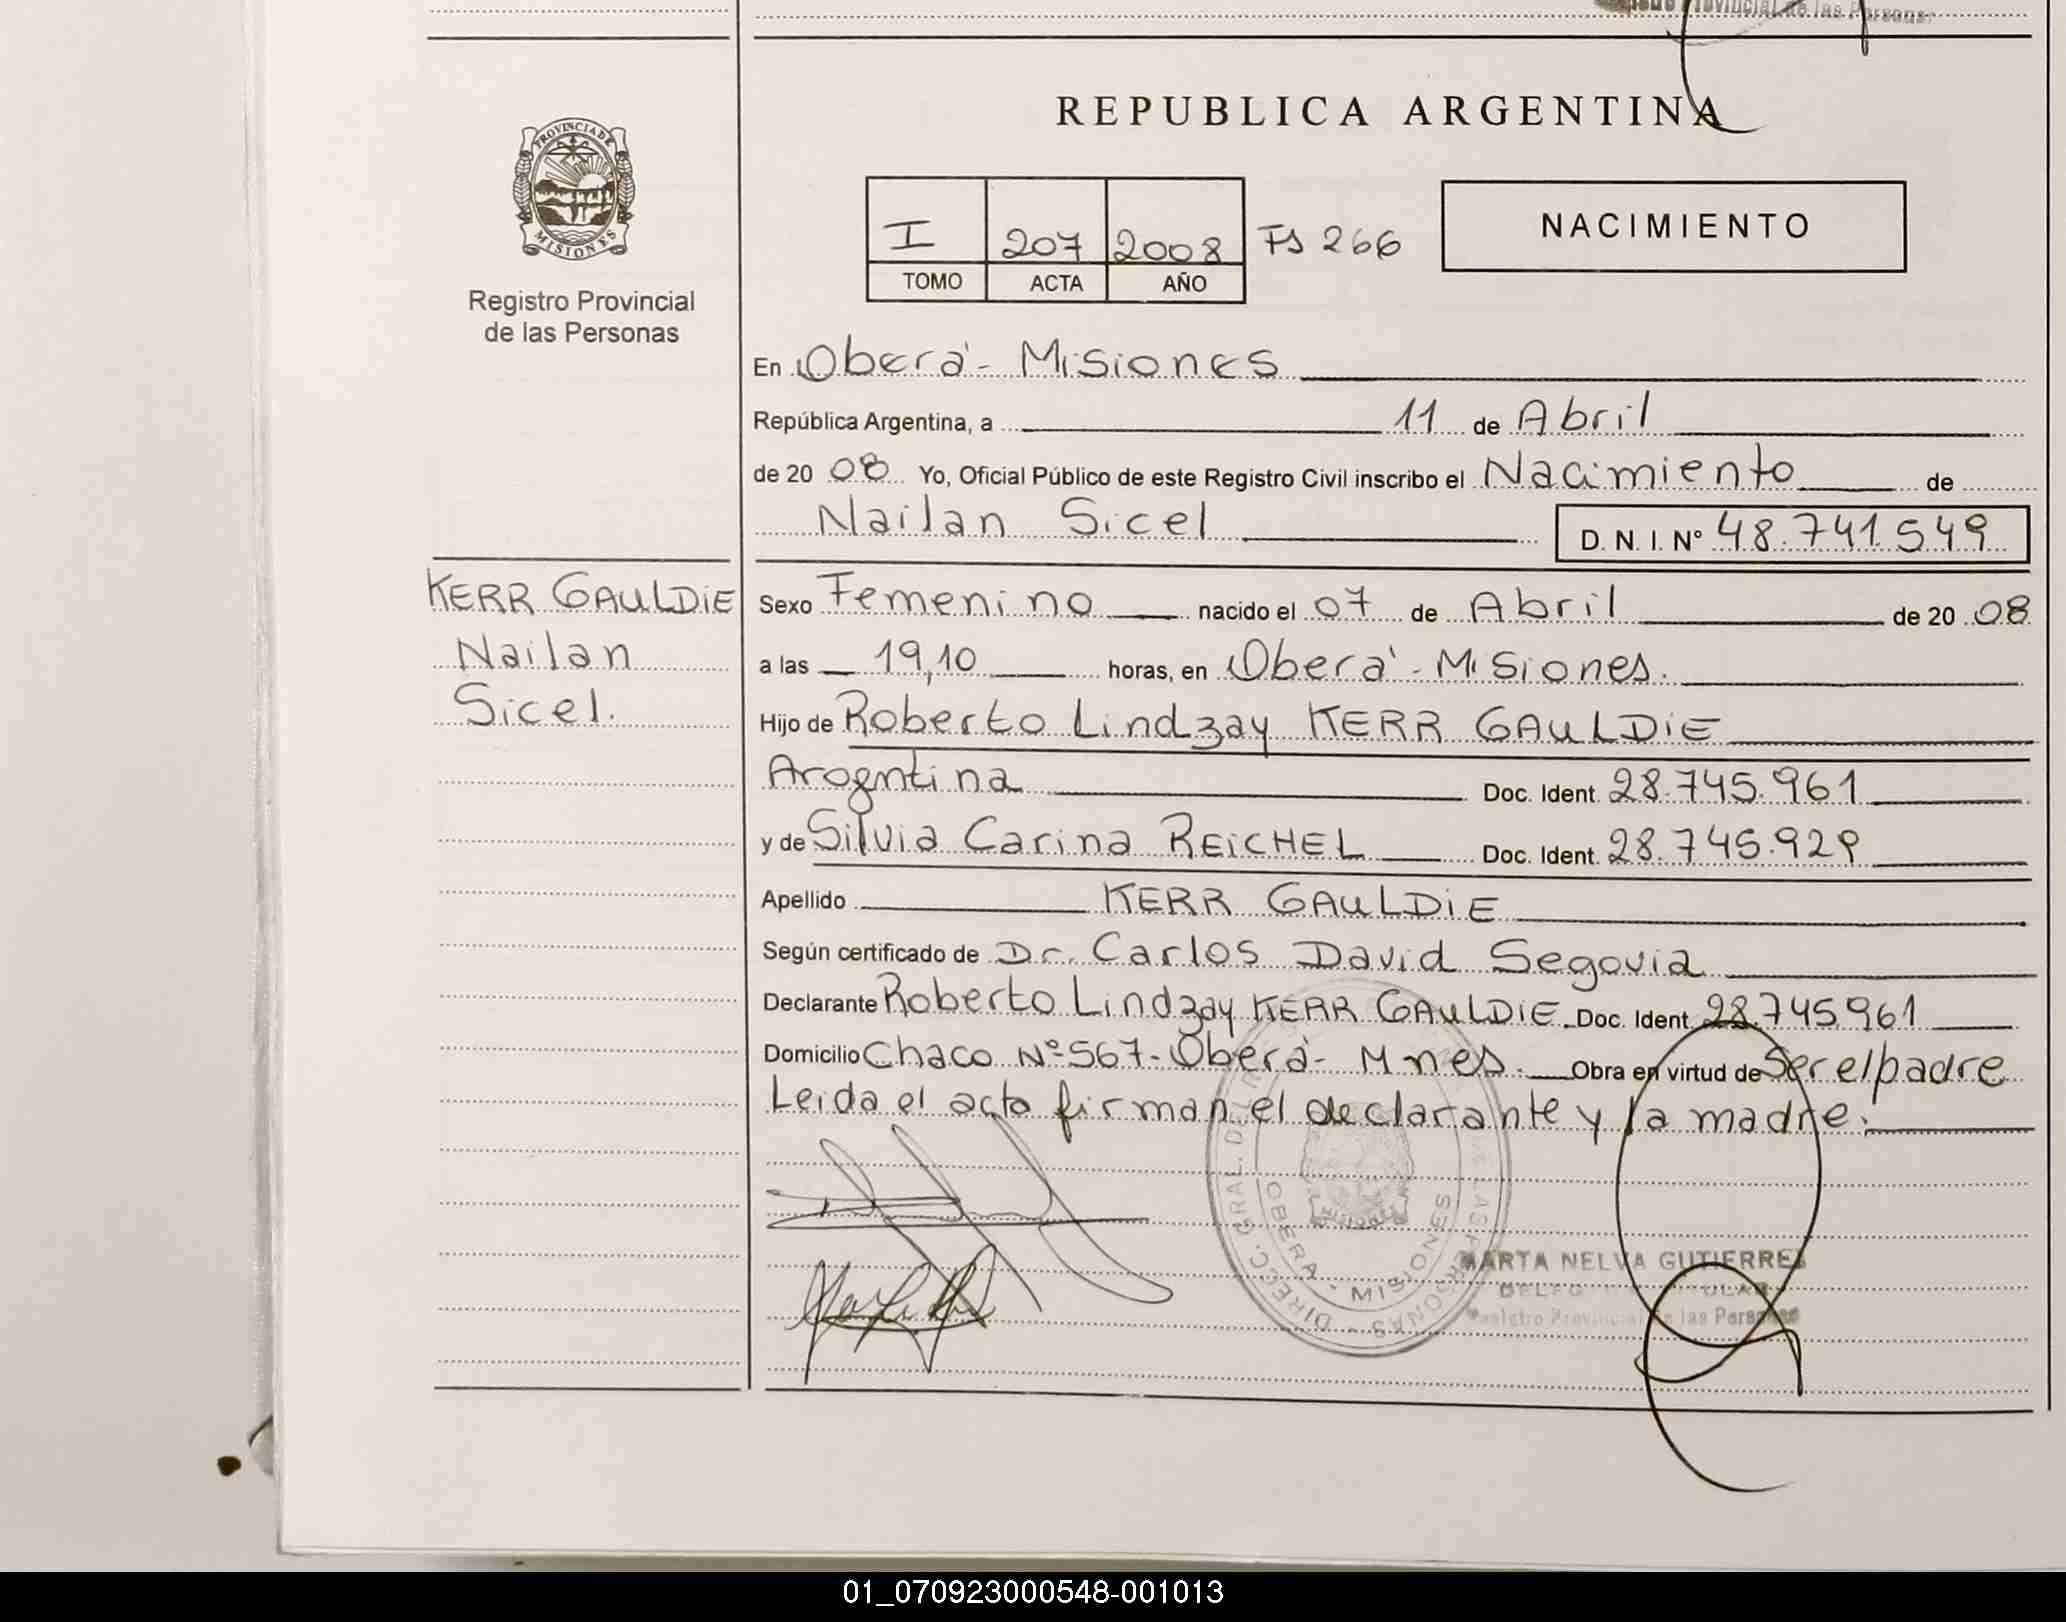 de las Personas
REPUBLICA ARGENTINA
PROVINCIA DE
MISIONES
Registro Provincial
de las Personas
I 207 2008 FS 266
TOMO ACTA AÑO
NACIMIENTO
En Oberá - Misiones
República Argentina, a 11 de Abril
de 20 08 Yo, Oficial Público de este Registro Civil inscribo el Nacimiento de
Nailan Sicel D. N. I. Nº 48.741.549
KERR GAULDiE
Nailan
Sicel.
Sexo Femenino nacido el 07 de Abril de 20 08
a las 19,10 horas, en Oberá - Misiones.
Hijo de Roberto Lindzay KERR GAULDiE
Argentina Doc. Ident. 28.745.961
y de Silvia Carina REiCHEL Doc. Ident. 28.745.929
Apellido KERR GAULDiE
Según certificado de Dr. Carlos David Segovia
Declarante Roberto Lindzay KERR GAULDiE Doc. Ident. 28.745.961
Domicilio Chaco Nº 567 - Oberá - Mnes. Obra en virtud de Ser el padre
Leida el acta firman el declarante y la madre.
DIRECC. GRAL. DEL DE LAS PERSONAS
OBERA - MISIONES
MARTA NELVA GUTIERREZ
Registro Provincial de las Personas
01_070923000548-001013